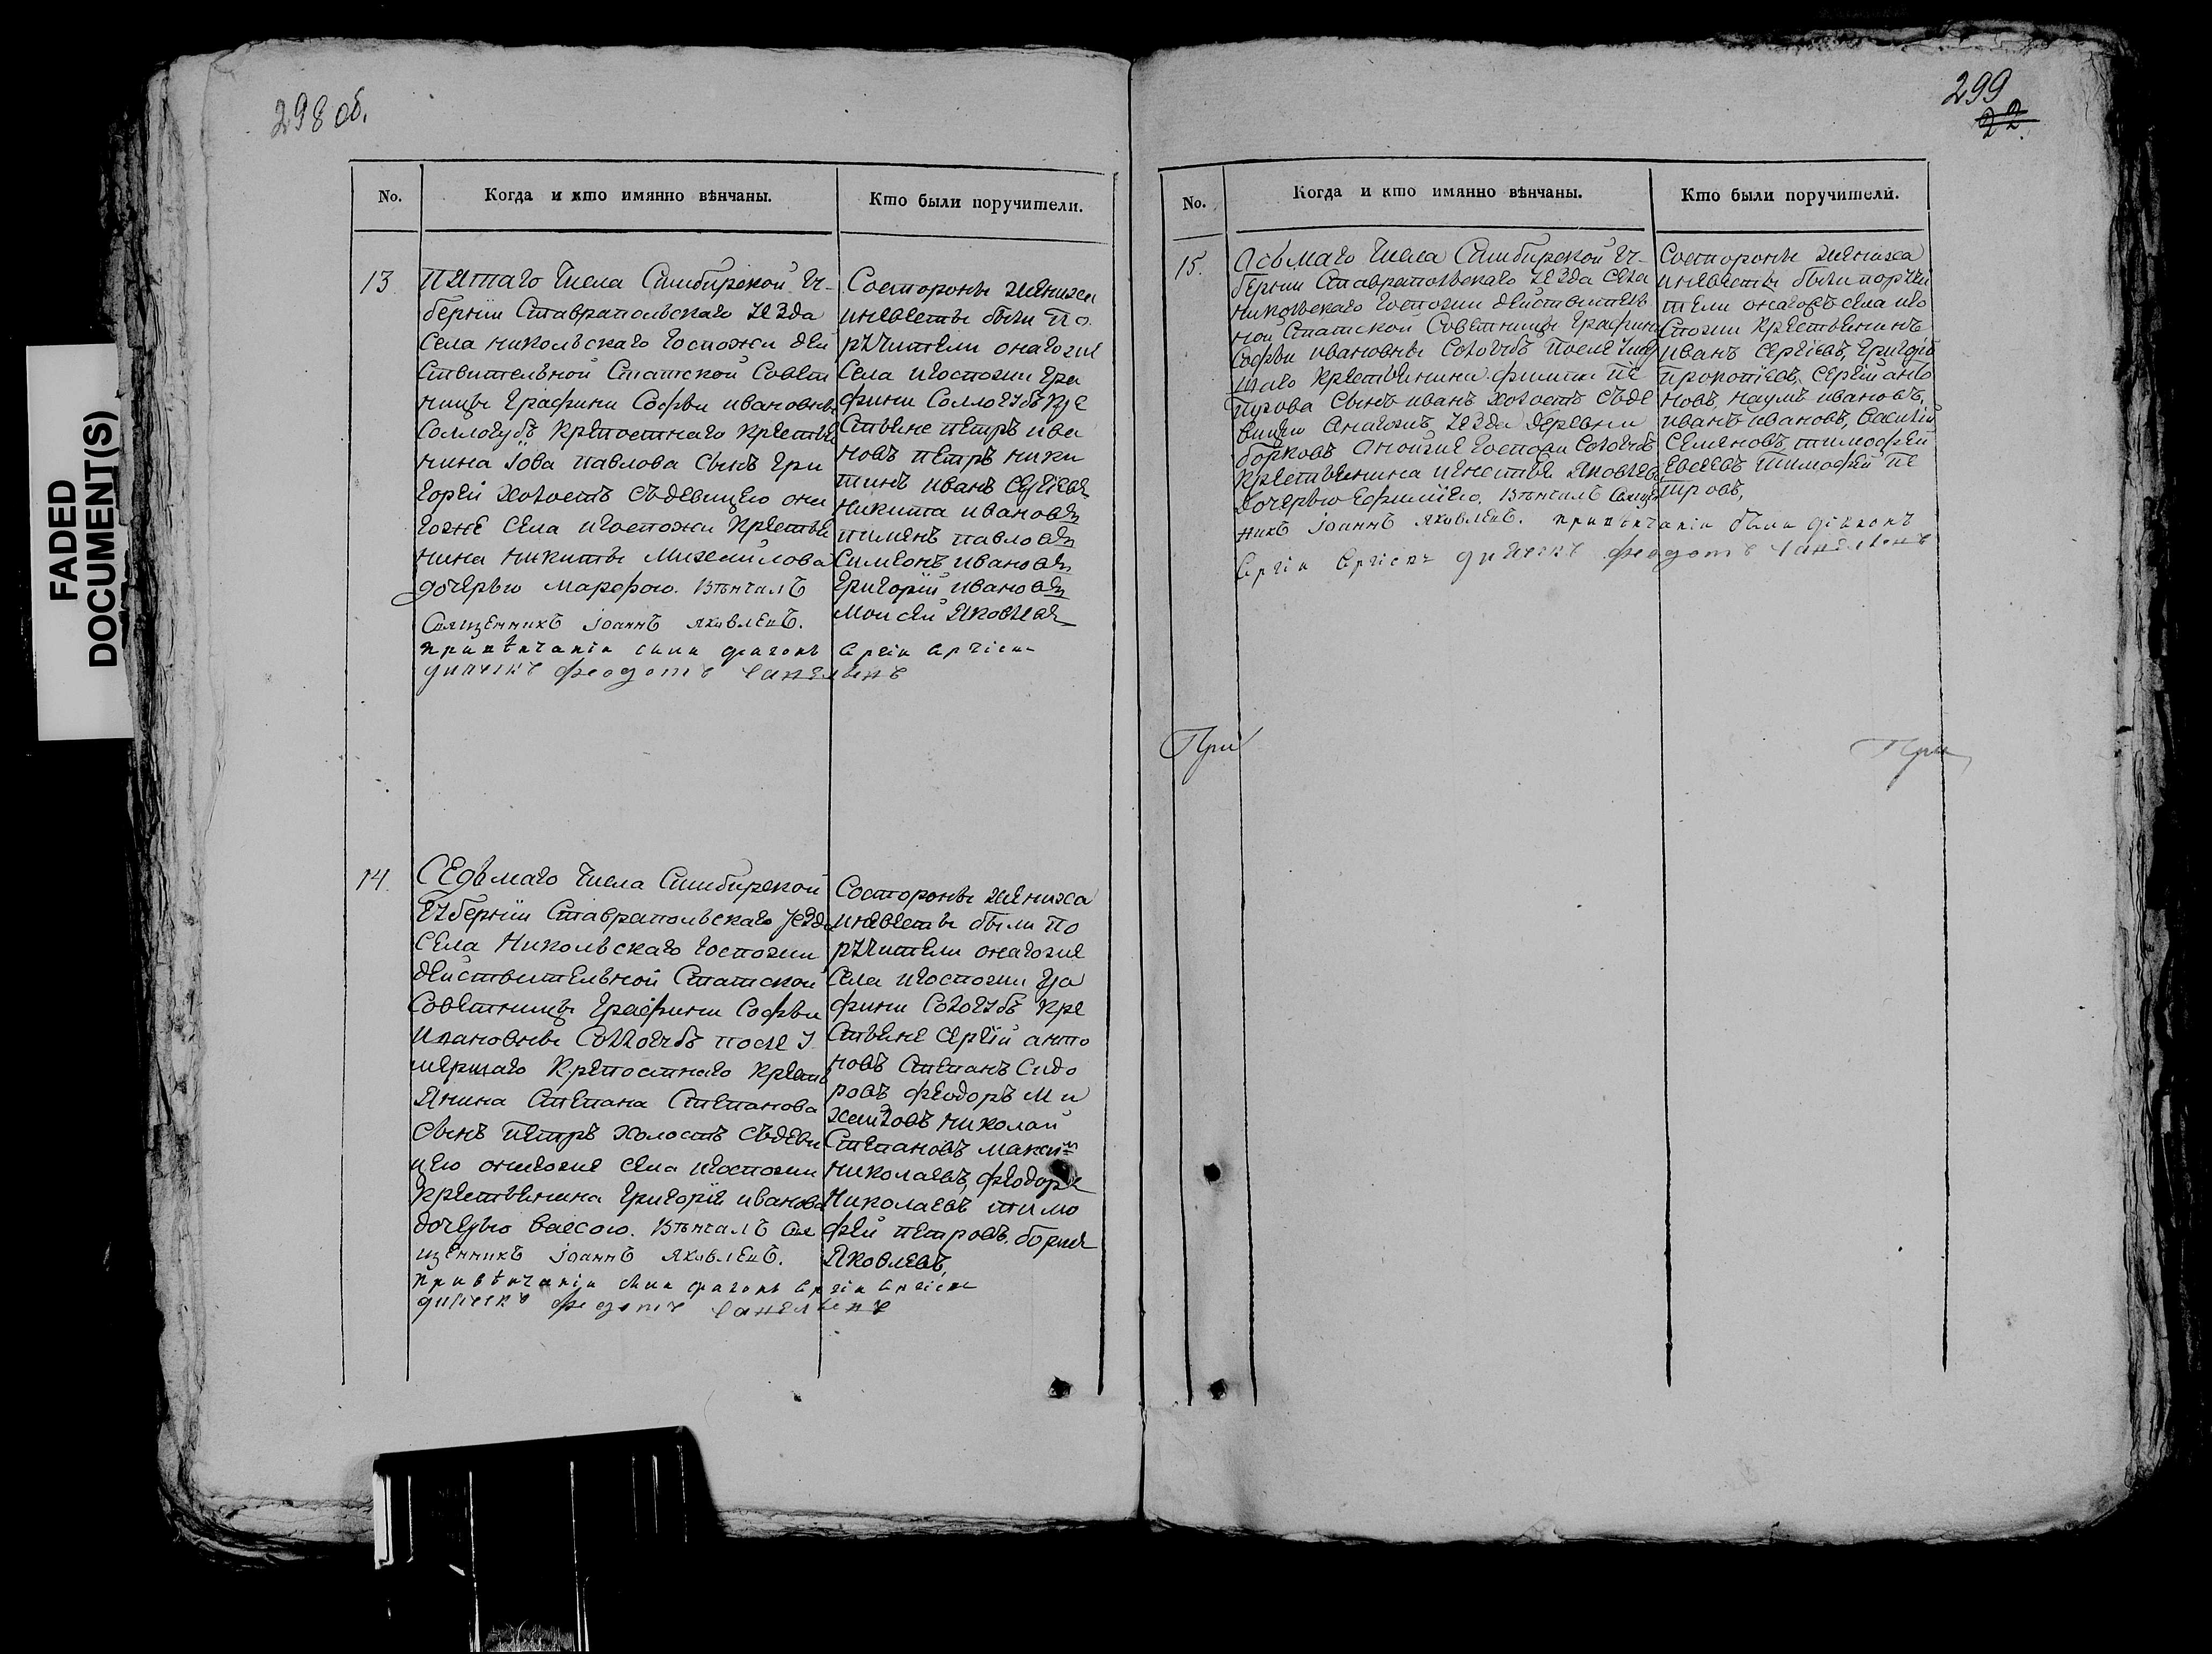 298 об.
No.
Когда и кто имянно вѣнчаны.
Кто были поручители.
13
Пятаго числа Симбирской гу-
бернии Ставрапольскаго уезда
Села Никольскаго Госпожи дей
ствительной Статской Советни
ницы Графини Софьи ивановны
Соллогубъ крепостнаго крестья
нина Иова Павлова сынъ Гри
горей холостъ съдевицею она
гожѣ села игоспожи крестья
нина Никиты Михайлова
дочерью Марфою. Вѣнчалъ
Священникъ Iоаннъ Яковлевъ.
Состороны жениха
иневесты были по
ручители онагоже
Села игоспожи Гра
фини Соллогубъ кре
стьяне петръ ива
новъ петръ ники
тинъ иванъ Сергiевъ
никита ивановъ
пименъ павловъ
Симеонъ ивановъ
Григорий ивановъ
Моисей Яковлевъ
14.
Седьмаго числа Симбирской
Губернии Ставрапольскаго уезда
Села Никольскаго госпожи
действительной Статской
Советницы Графини Софьи
Ивановны Соллогубъ после у
мершаго крепостнаго кресть
янина Степана Степанова
сынъ петръ холостъ съдеви
цею онагоже села игоспожи
крестьянина Григорiя иванова
дочерью Вассою. Вѣнчалъ Свя
щенникъ Iоаннъ Яковлевъ.
Состороны жениха
иневесты были по
ручители онагоже
Села игоспожи Гра
фини Сологубъ кре
стьяне Сергий анто
новъ Степанъ Сидо
ровъ Феодоръ Ми
хайловъ Николай
Степановъ Максимъ
Николаевъ, Феодоръ
Николаевъ тимо
фей петровъ, борисъ
Яковлевъ,
299
22.
No.
Когда и кто имянно вѣнчаны.
Кто были поручители.
15.
Осьмаго числа Симбирской гу-
бернии Ставрапольскаго уезда села
никольскаго госпожи действитель
ной Статской Советницы Графини
Софьи ивановны Сологубъ после умер
шаго крестьянина филипа пе
трова сынъ иванъ холостъ съде
вицею онагожъ уезда деревни
борковъ онойже госпожи Сологубъ
крестьянина игнатья Яковлева
дочерью Ефимiею. Вѣнчалъ Священ
никъ Iоаннъ Яковлевъ.
Состороны жениха
иневесты были поручи
тели онагожъ села иго
спожи крестьянинъ
иванъ Сергiевъ, Григорiй
прокопiевъ, Сергiй анто
новъ, наумъ ивановъ,
иванъ ивановъ, Василий
Семеновъ, тимофей
Евсеевъ Тимофей пе
тровъ,
При
При
FADED
DOCUMENT(S)